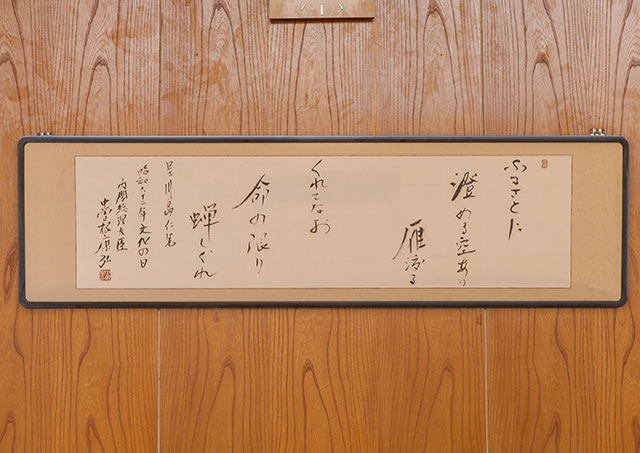 ふるさとに
澄める空あり
雁渡る
くれてなお
命の限り
蝉しぐれ
呈川島仁兄
昭和六十二年文化の日
内閣総理大臣
中曽根康弘